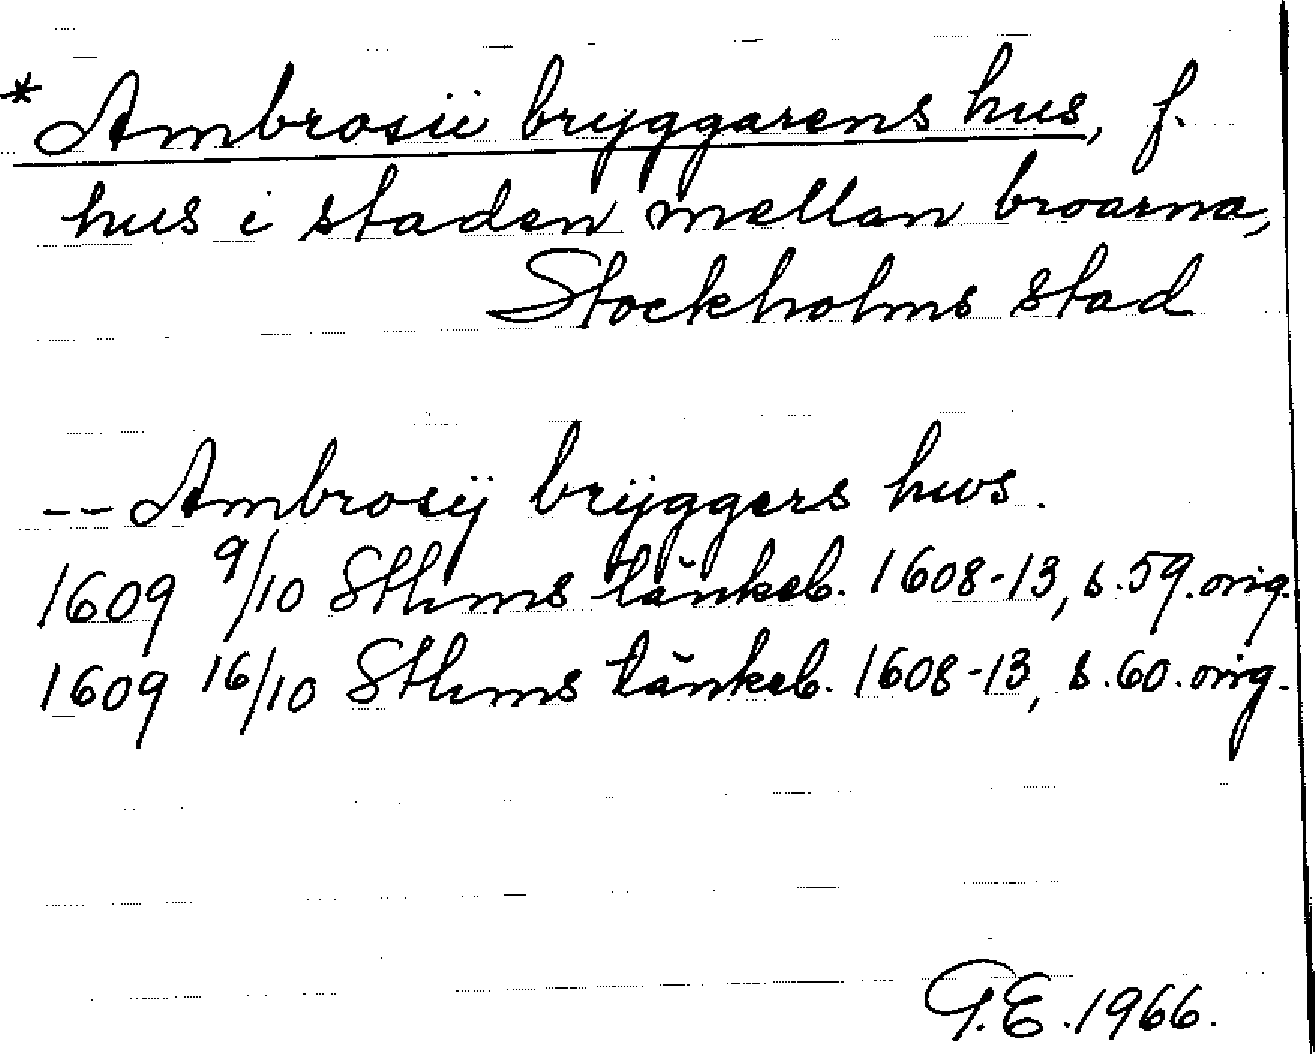 *Ambrosii bryggarens hus, f.
hus i staden mellan broarna,
Stockholms stad
-- Ambrosij brÿggers hws.
1609 9/10 Sthms tänkeb. 1608-13, s. 59. orig.
1609 16/10 Sthms tänkeb. 1608-13, s. 60. orig.
G.E. 1966.